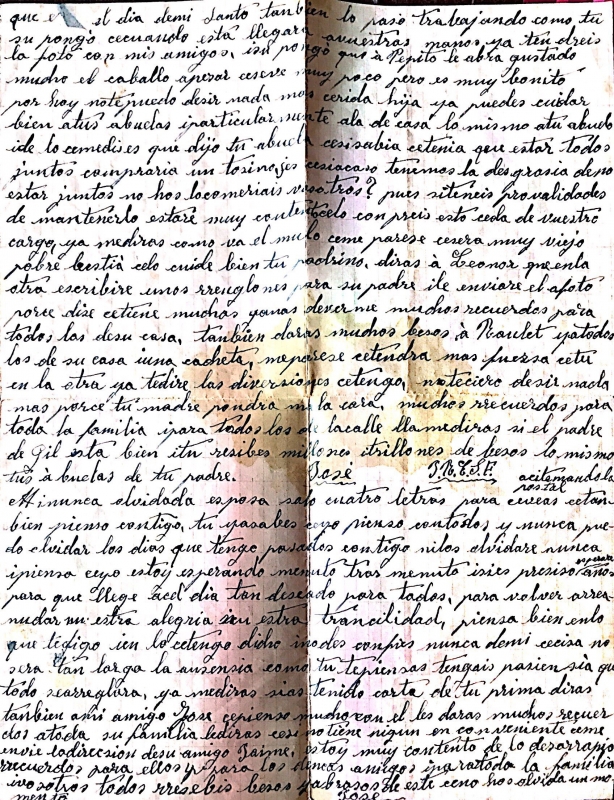 que el dia demi Santo tanbien lo paso trabajando como tu
su pongo cecuando esta llegara avuestras manos ya tendreis
la foto con mis amigos, isu pongo que à Pepito le abra gustado
mucho el caballo apesar ceserve muy poco pero es muy bonito
por hoy notepuedo desir nada mas cerida hija ya puedes cuidar
bien atus abuelas iparticular mente ala de casa lo mismo atu abuelo
ide lo cemedises que dijo tu abuela cesisabia cetenia que estar todos
juntos compraria un tosino, jes cesiacaso tenemos la desgrasia deno
estar juntos no hos locomeriais vosotros? pues siteneis provalidades
de mantenerlo estare muy contento celo conpreis esto ceda de vuestro
cargo, ya mediras como va el mulo ceme parese cesera muy viejo
pobre bestia celo cuide bien tu padrino, diras à Leonor que enla
otra escribire unos rrenglones para su padre ile enviare el afoto
porce dise cetiene muchas ganas deverme muchos recuerdos para
todos las desu casa, tanbien daras muchos besos à Raulet yatodos
los de su casa iuna cacheta, meparese cetendra mas fuersa cetu
en la otra ya tedire las diversiones cetengo, noteciero desir nada
mas porce tu madre pondra mala cara, muchos rrecuerdos para
toda la familia ipara todos los de lacalle lla mediras si el padre
de Gil esta bien itu resibes millones itrillones de besos lo mismo
tus abuelas de tu padre. José
acitemando la postal
Ami nunca olvidada esposa solo cuatro letras para ceveas cetan
bien pienso contigo, tu yasabes ceyo pienso contodos y nunca pue-
do olvidar los dias que tengo pasados contigo nilos olvidare nunca
ipiensa ceyo estoy esperando menuto tras menuto isies presiso esperare años
para que llege acel dia tan deseado para todos, para volver arrea
nudar nuestra alegria inuestra trancilidad, piensa bien enlo
que tedigo ien lo cetengo dicho modes confies nunca demi cecisa no
sera tan larga la ausensia como tu tepiensas tengais pasiensia que
todo searreglara, ya mediras sias tenido carta de tu prima diras
tanbien ami amigo Jose cepienso mucho con el les daras muchos recuer
dos atoda su familia lediras cesi notiene nigun en conveniente ceme
envie ladireccion desu amigo Jaime, estoy muy contento de lo
rrecuerdos para ellos y para los demas amigos iparatoda la familia
ivosotros todos rresebis besos yabrasos de este ceno hos olvida un mo
mento José